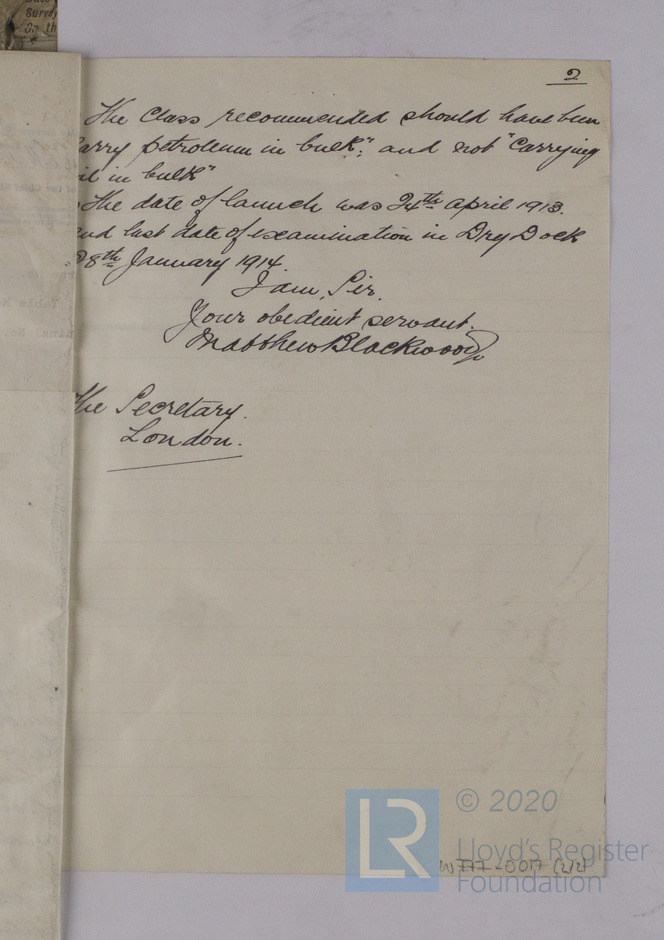 Survey
On th
2
The Class recommended should have been
arry petroleum in bulk"; and not "Carrying
il in bulk"
The date of launch was 24th April 1913.
and last date of examination in Dry Dock
28th January 1914.
I am, Sir.
Your obedient servant.
Matthew Blackwood
The Secretary.
London.
LR
© 2020
Lloyd's Register
Foundation
W777-0017 (2/2)